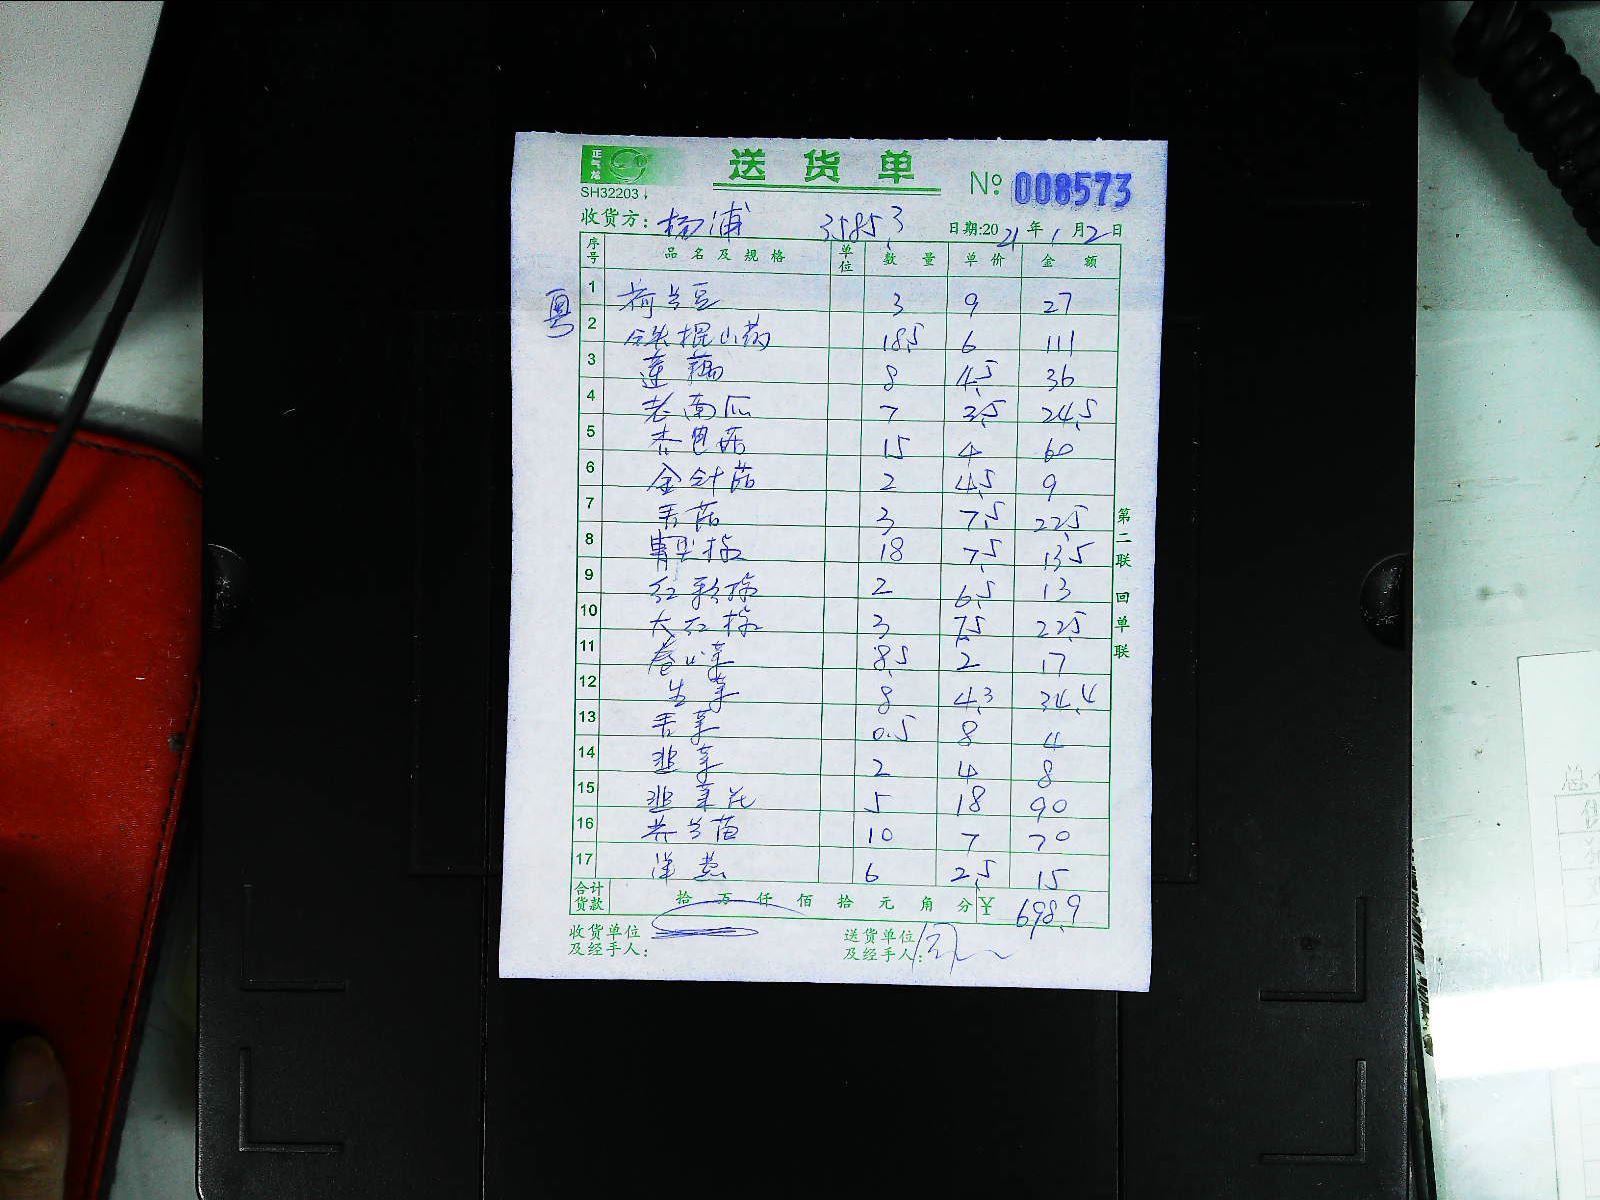 正气龙
SH32203
送货单
№ 008573
收货方: 杨浦 3585.3 日期:2021年1月2日
序号 品名及规格 单位 数量 单价 金额
粤
1 荷兰豆 3 9 27
2 铁棍山药 18.5 6 111
3 莲藕 8 4.5 36
4 老南瓜 7 3.5 24.5
5 杏包菇 15 4 60
6 金针菇 2 4.5 9
7 香菇 3 7.5 22.5
8 青尖椒 18 7.5 135
9 红彩椒 2 6.5 13
10 大红椒 3 7.5 22.5
11 卷心菜 8.5 2 17
12 生菜 8 4.3 34.4
13 香菜 0.5 8 4
14 韭菜 2 4 8
15 韭菜花 5 18 90
16 芥兰苗 10 7 70
17 洋葱 6 2.5 15
合计货款 拾 万 仟 佰 拾 元 角 分 ¥ 698.9
收货单位及经手人:
送货单位及经手人:
第二联 回单联